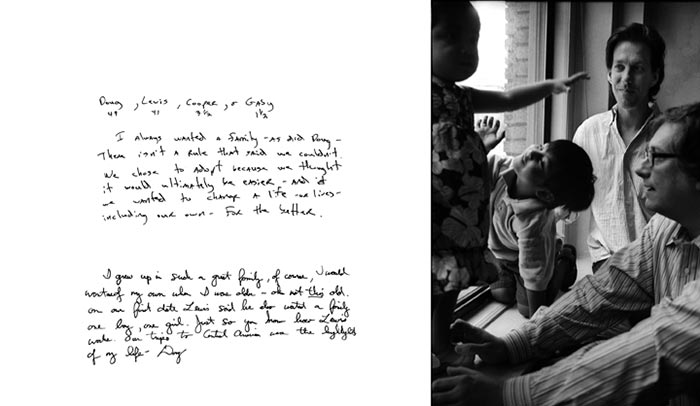 Doug, Lewis, Cooper, & GABY
49 41 3 1/2 1 1/2
I always wanted a family - as did Doug -
There isn't a rule that said we couldn't.
We chose to adopt because we thought
it would ultimately be easier - and if
we wanted to change a life - or lives -
including our own - For the better.
I grew up in such a great family, of course, I would
want one of my own when I was older - ok not this old.
on our first date Lewis said he also wanted a family
one boy, one girl. Just so you know how Lewis
works. Our trips to Central America were the highlights
of my life - Doug